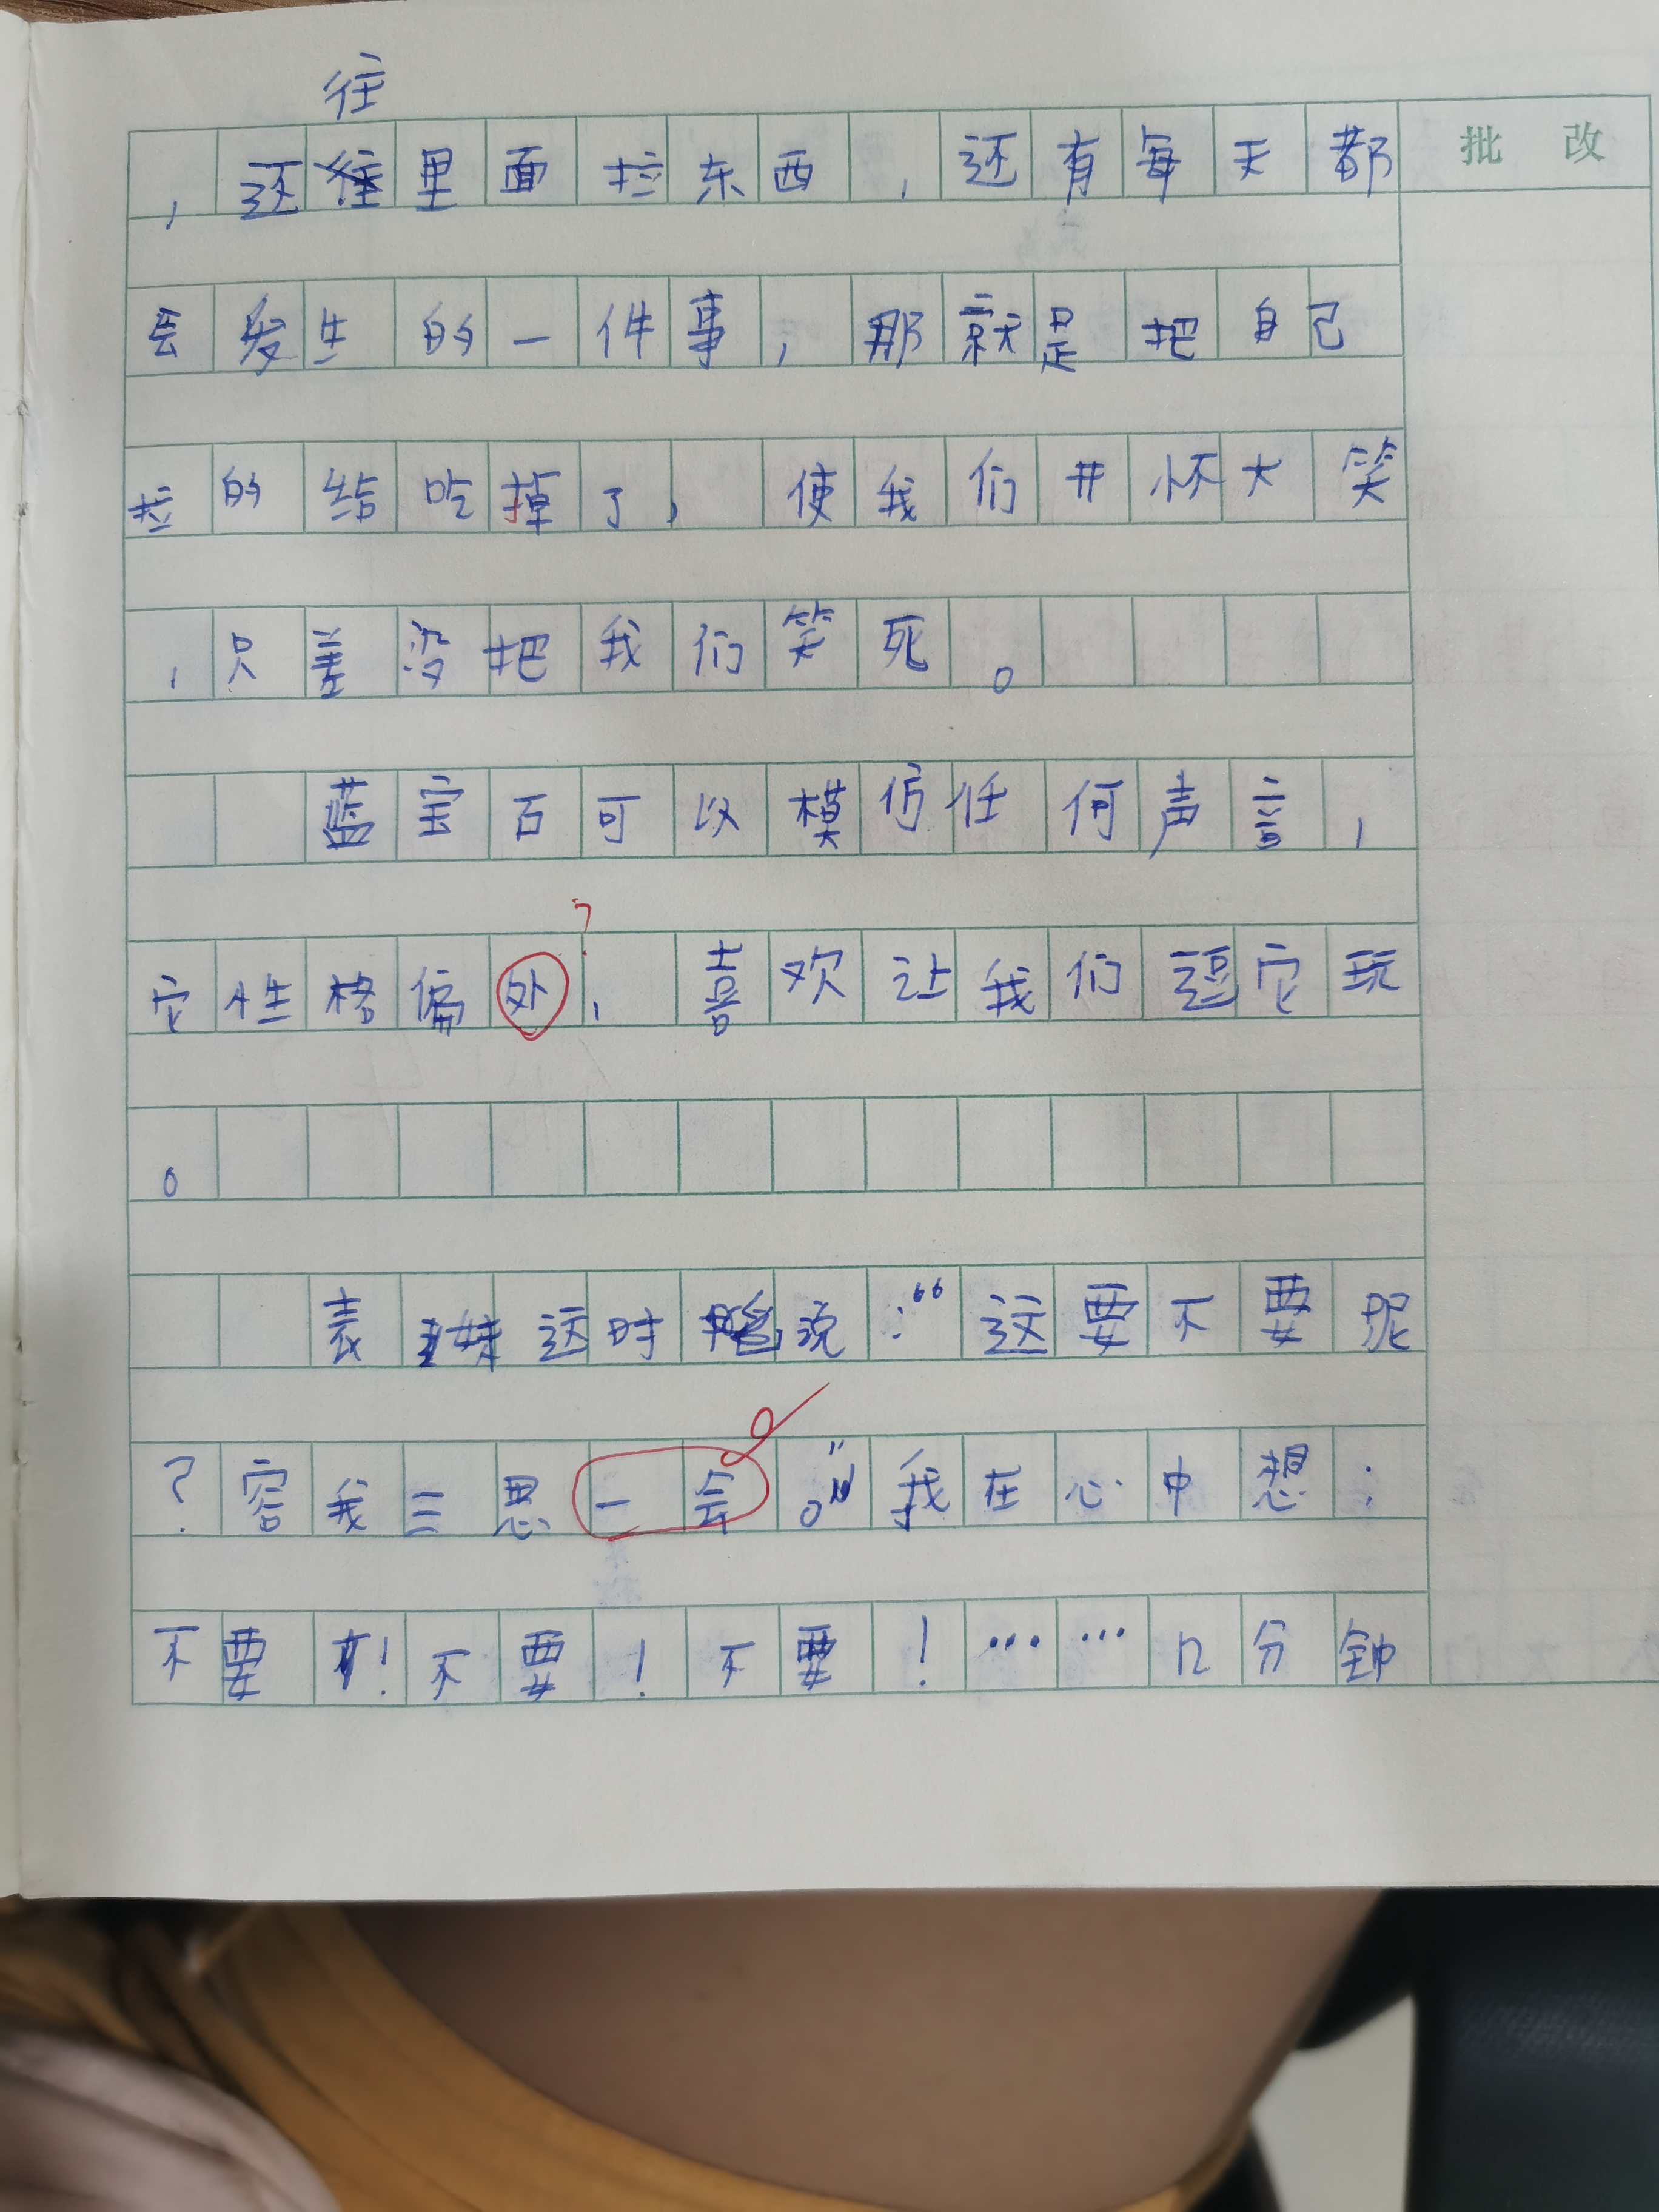 往
，还往里面拉东西，还有每天都
批 改
会发生的一件事，那就是把自己
拉的给吃掉了，使我们开怀大笑
，只差没把我们笑死。
蓝宝石可以模仿任何声音，
?
它性格偏外，喜欢让我们逗它玩
。
表妹这时说：“这要不要呢
？容我三思一会。”我在心中想：
不要！不要！不要！……n分钟